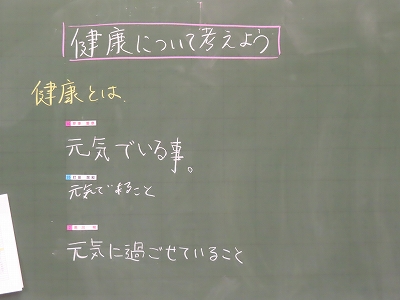 健康について考えよう
健康とは、
元気でいる事。
元気であること
元気に過ごせていること